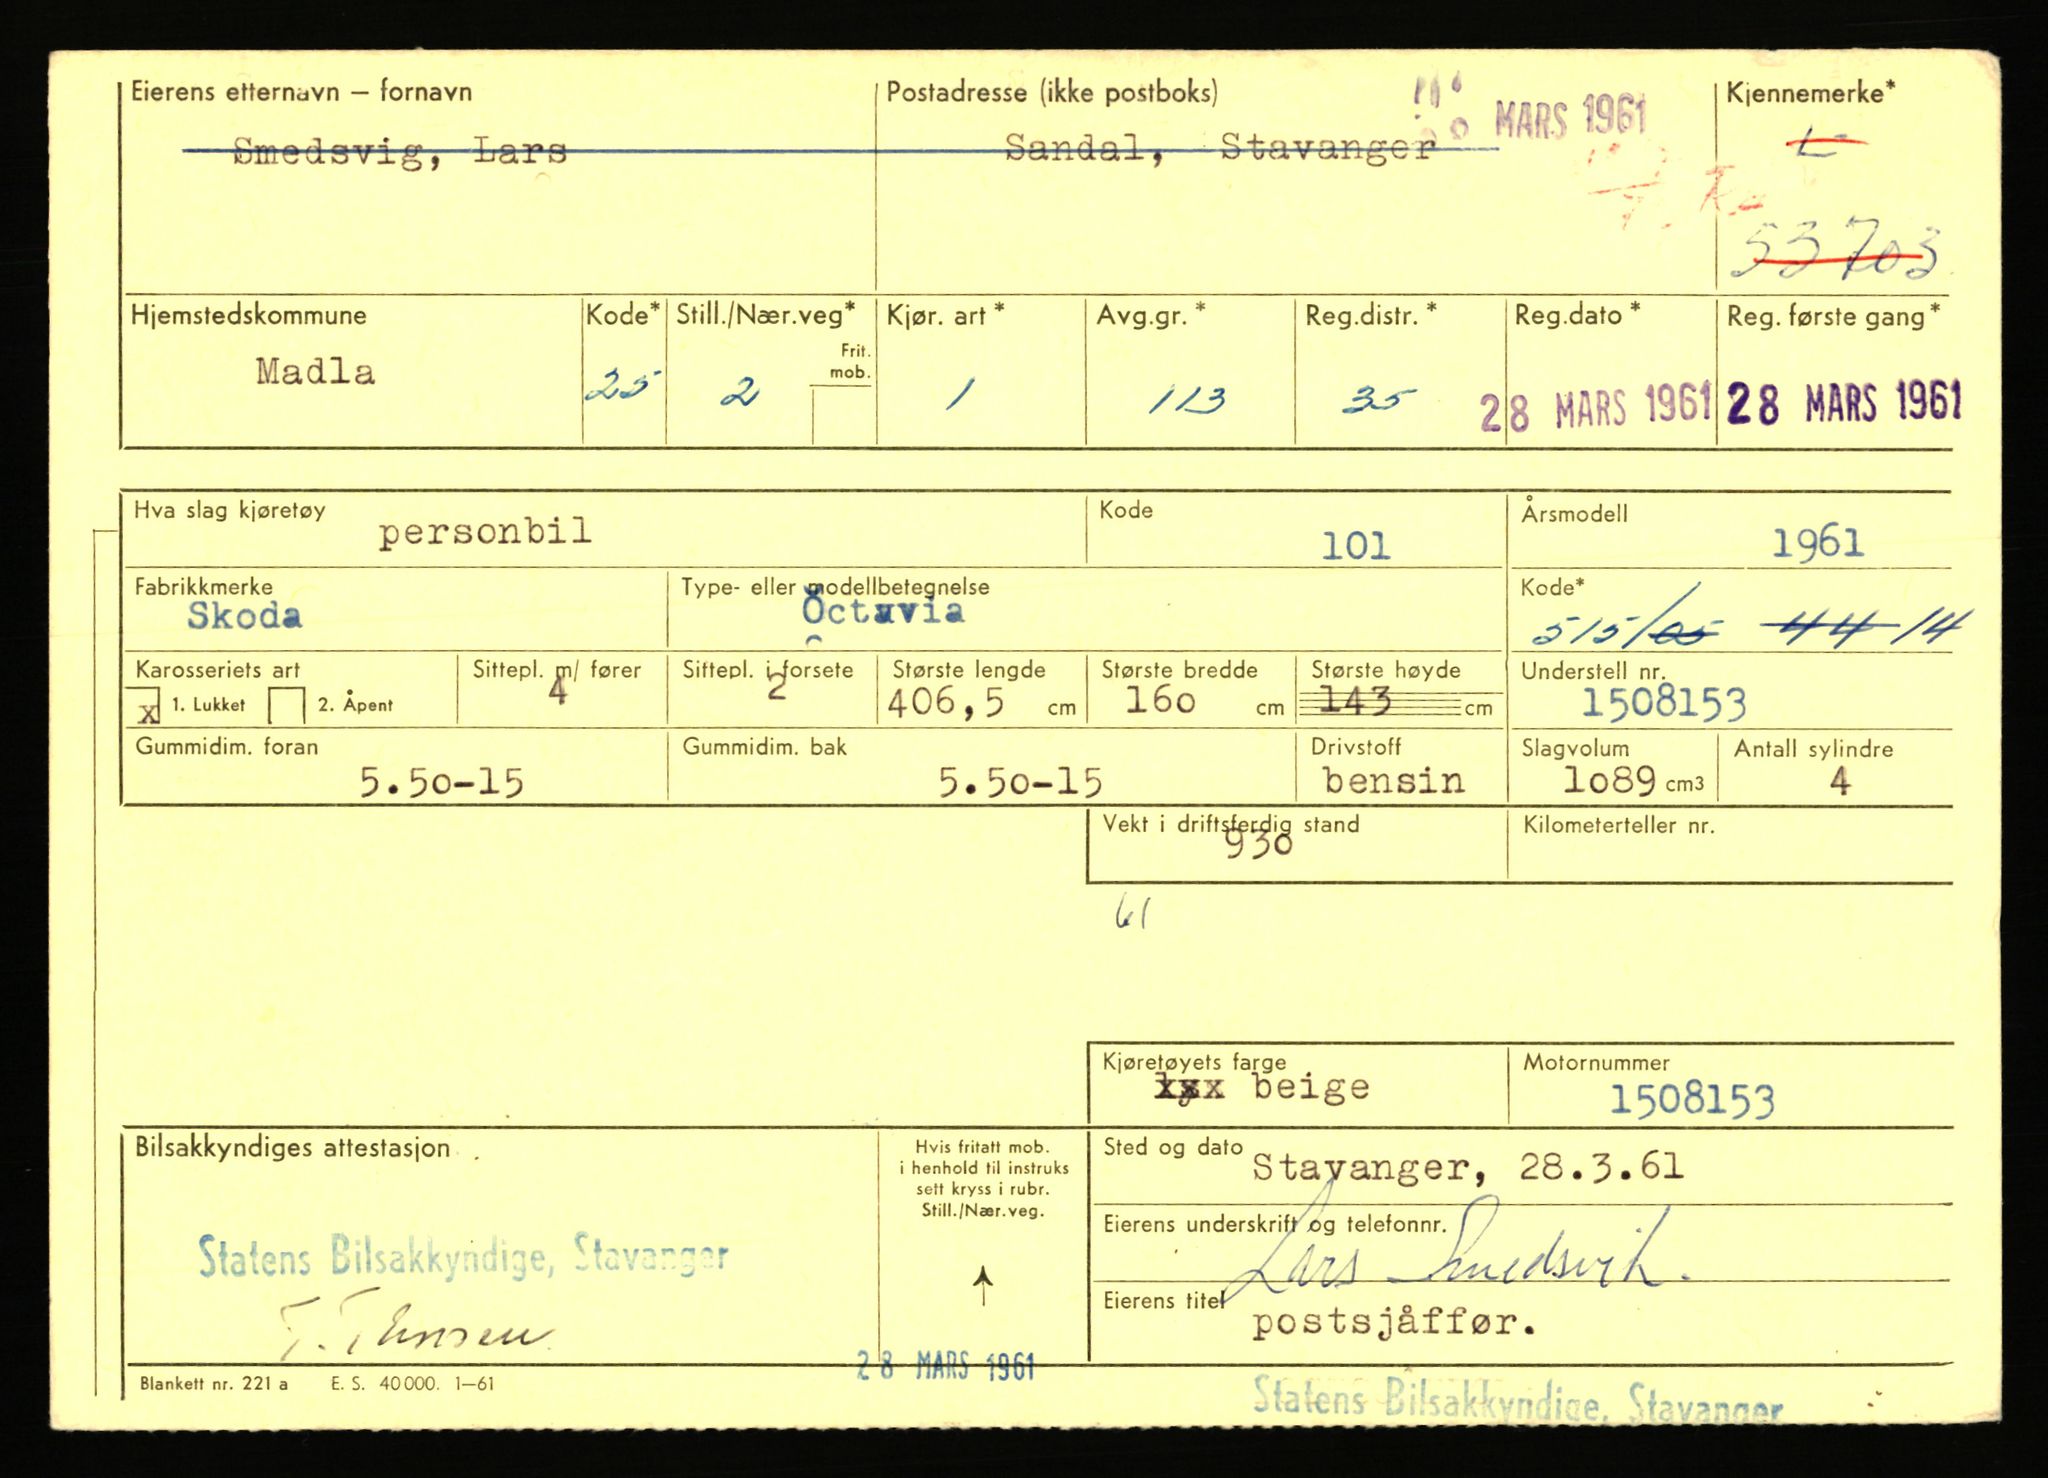 Eierens etternavn – fornavn Postadresse (ikke postboks) Kjennemerke*
Smedsvig, Lars Sandal, Stavanger MARS 1961 L-
53703
Hjemstedskommune Kode* Still./Nær.veg* Kjør. art * Avg.gr.* Reg.distr.* Reg.dato * Reg. første gang*
Frit. mob.
Madla 25 2 1 113 35 28 MARS 1961 28 MARS 1961
Hva slag kjøretøy personbil Kode 101 Årsmodell 1961
Fabrikkmerke Type- eller modellbetegnelse Kode*
Skoda Octavia 515/05 44 14
Karosseriets art Sittepl. m/ fører Sittepl. i forsete Største lengde Største bredde Største høyde Understell nr.
x 1. Lukket 2. Åpent 4 2 406,5 cm 160 cm 143 cm 1508153
Gummidim. foran Gummidim. bak Drivstoff Slagvolum Antall sylindre
5.50-15 5.50-15 bensin 1o89 cm3 4
Vekt i driftsferdig stand Kilometerteller nr.
930
61
Kjøretøyets farge Motornummer
beige 1508153
Bilsakkyndiges attestasjon
Hvis fritatt mob.
i henhold til instruks
sett kryss i rubr.
Still./Nær.veg.
Sted og dato Stavanger, 28.3.61
Eierens underskrift og telefonnr.
Lars Smedsvik.
Statens Bilsakkyndige, Stavanger
Eierens titel
postsjåffør.
28 MARS 1961
Blankett nr. 221 a E. S. 40 000. 1–61
Statens Bilsakkyndige, Stavanger